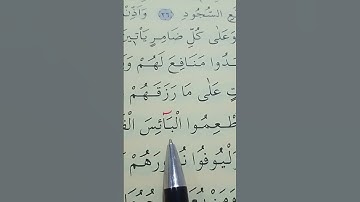 ـعِ السُّجُودِ ﴿٢٦﴾ وَاَذِّنْ
وَعَلٰى كُلِّ ضَامِرٍ يَأْتِينَ
ـهَدُوا مَنَافِعَ لَهُمْ وَ
ـتٍ عَلٰى مَا رَزَقَهُمْ
ـطْعِمُوا الْبَآئِسَ الْفَـ
وَلْيُوفُوا نُذُورَهُمْ